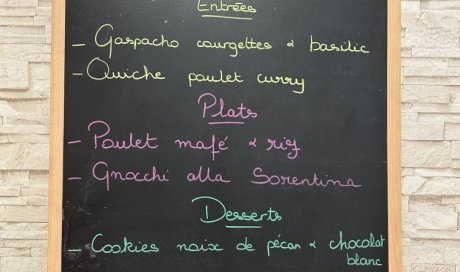 Entrées
- Gaspacho courgettes & basilic
- Quiche poulet curry
Plats
- Poulet mafé & riz
- Gnocchi alla Sorentina
Desserts
- Cookies noix de pécan & chocolat
blanc